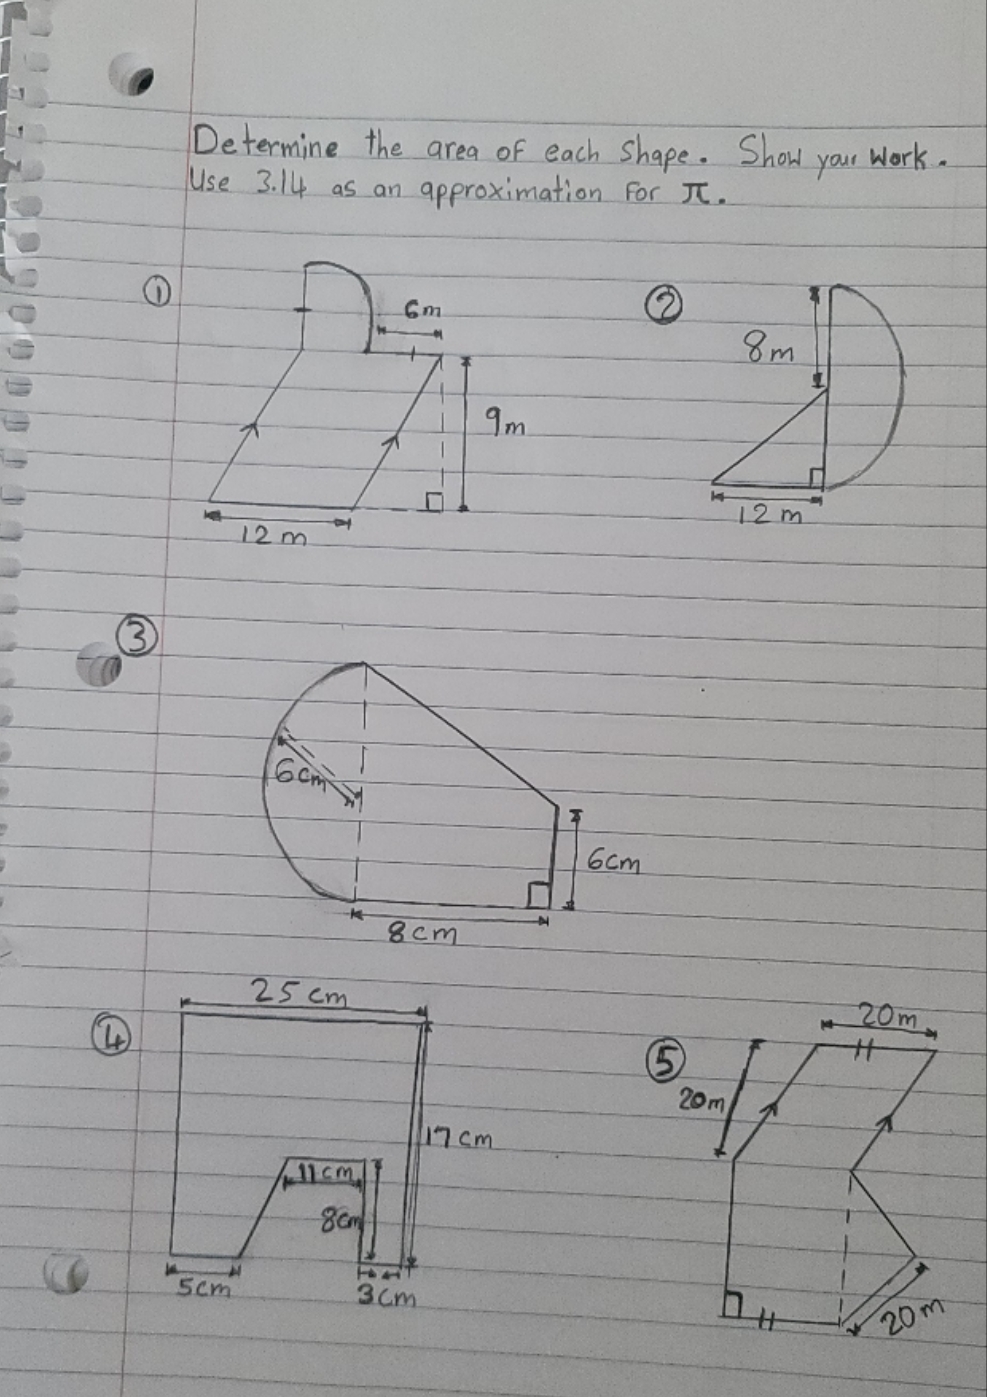 Determine the area of each shape. Show your work.
Use 3.14 as an approximation for π.
①
6m
9m
12 m
②
8m
12 m
③
6cm
6cm
8cm
④
25 cm
17 cm
11cm
8cm
5cm
3cm
⑤
20m
20m
20m